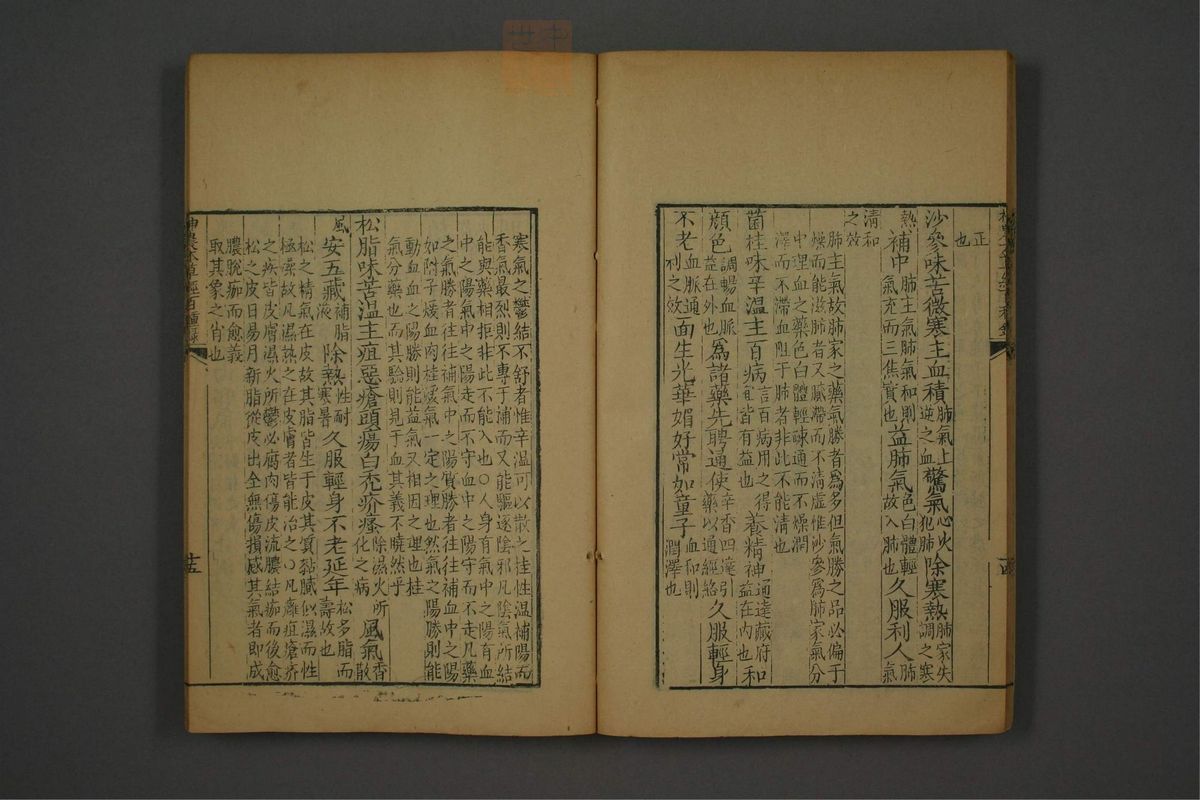 正也
沙參味苦微寒主血積肺氣上逆之血驚氣心火犯肺除寒熱肺家失調之寒
熱補中肺主氣肺氣和則氣充而三焦實也益肺氣色白體輕故入肺也久服利人肺氣
清和之效
肺主氣故肺家之藥氣勝者爲多但氣勝之品必偏于
燥而能滋肺者又膩滯而不清虛惟沙參爲肺家氣分
中理血之藥色白體輕疎通而不燥潤
澤而不滯血阻于肺者非此不能清也
菌桂味辛溫主百病言百病用之得宜皆有益也養精神通達藏府益在内也和
顏色調暢血脈益在外也爲諸藥先聘通使辛香四達引藥以通經絡久服輕身
不老血脈通利之效面生光華媚好常如童子血和則潤澤也
寒氣之鬱結不舒者惟辛溫可以散之桂性溫補陽而
香氣最烈則不專于補而又能驅逐陰邪凡陰氣所結
能與藥相拒非此不能入也〇人身有氣中之陽有血
中之陽氣中之陽走而不守血中之陽守而不走凡藥
之氣勝者往往補氣中之陽質勝者往往補血中之陽
如附子煖血肉桂煖氣一定之理也然氣之陽勝則能
動血血之陽勝則能益氣又相因之理也桂
氣分藥也而其驗則見于血其義不曉然乎
松脂味苦溫主疽惡瘡頭瘍白禿疥瘙除濕火所化之病風氣香散
風安五藏補脂液除熱性耐寒暑久服輕身不老延年松多脂而壽故也
松之精氣在皮故其脂皆生于皮其質黏膩似濕而性
極燥故凡濕熱之在皮膚者皆能治之〇凡癰疽瘡疥
之疾皆皮膚濕火所鬱必腐肉傷皮流膿結痂而後愈
松之皮日易月新脂從皮出全無傷損感其氣者即成
膿脫痂而愈義
取其象之肖也
神農本草經百種錄